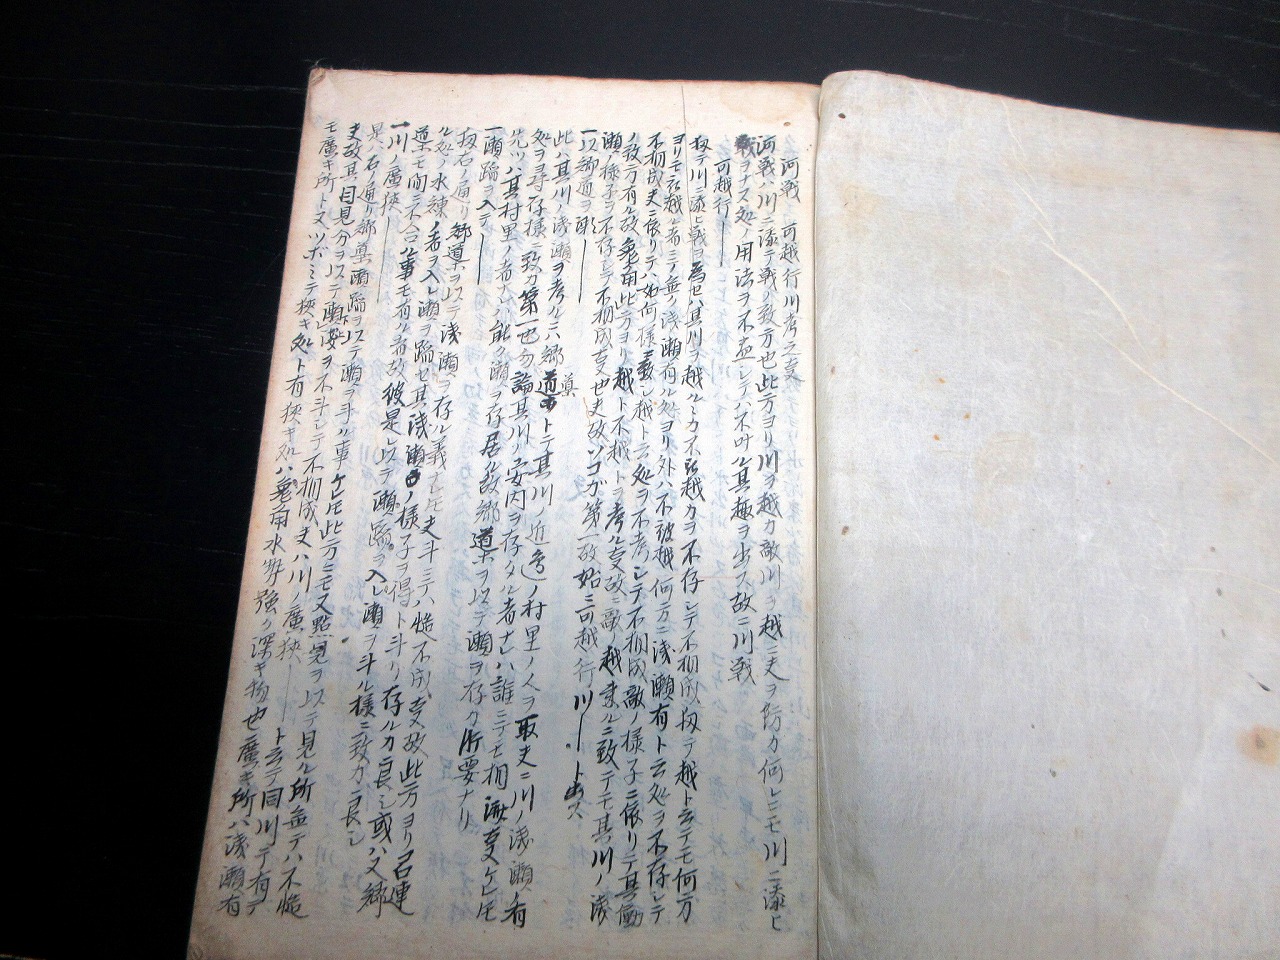 河戦　可越行川考之事
河戦ハ川ニ添テ戦ノ致方也此方ヨリ川ヲ越カ敵川ヲ越ニ夫ヲ防カ何レニモ川ニ添ヒ
戦ヲナス処ノ用法ヲ不盡シテハ不叶ル其趣ヲ出ス故ニ川戦
可越行――
扨テ川ニ添ヒ戦ヲ為セハ其川ヲ越ルカ不被越カヲ不存シテ不相成扨テ越ト云テモ何方
ヨリモ被越ル者ニテ無ノ浅瀬有ル処ヨリ外ハ不被越何方ニ浅瀬有ト云処ヲ不存シテ
不相成夫ニ依リテハ如何様ニ致シ越ト云処ヲ不考シテ不相成敵ノ様子ニ依リテ其働
ノ致方有ル故兎角此方ヨリ越ト不越トヲ考ル事故ニ敵ノ越来ルニ致テモ其川ノ浅
瀬ノ様子ヲ不存シテ不相成事也夫故ソコガ第一故始ニ可越行川――ト出ス
一以郷導ヲ――
此ハ其川ノ浅瀬ヲ考ルニハ郷導トテ其川ノ近邊ノ村里ノ人ヲ取夫ニ川ノ浅瀬ノ有
処ヲ尋存様ニ致カ第一也勿論其川ノ案内ヲ存タル者ナレハ誰ニテモ相済事ケレ𪜈
先ツハ其村里ノ者ナレハ能ク瀬ヲ存居ル故郷導ヲ以テ瀬ヲ存カ所要ナリ
一瀬踏ヲ入テ――
扨右ノ通リ郷導ヲ以テ浅瀬ヲ存ル義ナレ𪜈夫斗ニテハ慥不成事故此方ヨリ召連
ル処ノ水練ノ者ヲ入レ瀬ヲ踏セ其浅瀬ノ様子ヲ得ト斗リ存ルカ良シ或ハ又郷
導モ間ニ不合ル事モ有ル者故彼是以テ瀬踏ヲ入レ瀬ヲ斗ル様ニ致カ良シ
一川ノ廣狭――
是ハ右ノ通リ郷導瀬踏ヲ以テ瀬ヲ斗ル事ケレ𪜈此方ニモ又點見ヲ以テ見ル所無テハ不慥
夫故其目見分ヲ以テ瀬ヲ不斗シテ不相成夫ハ川ノ廣狭――ト云テ同川テ有テ
モ廣キ所ト又ツボミテ狭キ処ト有狭キ処ハ兎角水勢強ク深キ物也廣キ所ハ浅瀬有